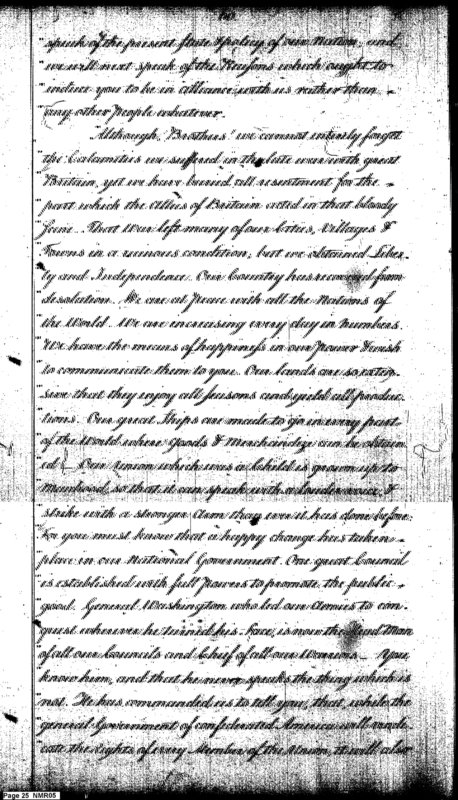 60.
speak of the present State & policy of our Nation; and
we will next speak of the Reasons which ought to
induce you to be in alliance with us rather than
any other People whatever.
Although, Brothers! we cannot intirely forget
the Calamities we suffered in the late war with great
Britain, yet we have buried all resentment for the
part which the allies of Britain acted in that bloody
scene. That War left many of our Cities, Villages &
Towns in a ruinous condition; but we obtained Liber-
ty and Independence. Our Country has recovered from
desolation. We are at Peace with all the Nations of
the World. We are increasing every day in numbers.
We have the means of happiness in our Power & wish
to communicate them to you. Our lands are so exten-
sive that they enjoy all seasons and yield all produc-
tions. Our great Ships are made to go in every part
of the World where Goods & Merchandize can be obtain-
ed. Our Union which was a Child is grown up to
Manhood, so that it can speak with a louder voice, &
strike with a stronger Arm than ever it has done before:
For you must know that a happy change has taken
place in our National Government. One great Council
is established with full Powers to promote the public
good. General Washington who led our Armies to con-
quest wherever he turned his Face, is now the Head Man
of all our Councils and Chief of all our Warriors. You
know him, and that he never speaks the thing which is
not. He has commanded us to tell you, that, while the
general Government of confederated America will vindi-
cate the Rights of every Member of the Union, it will also
Page 25 NMR05